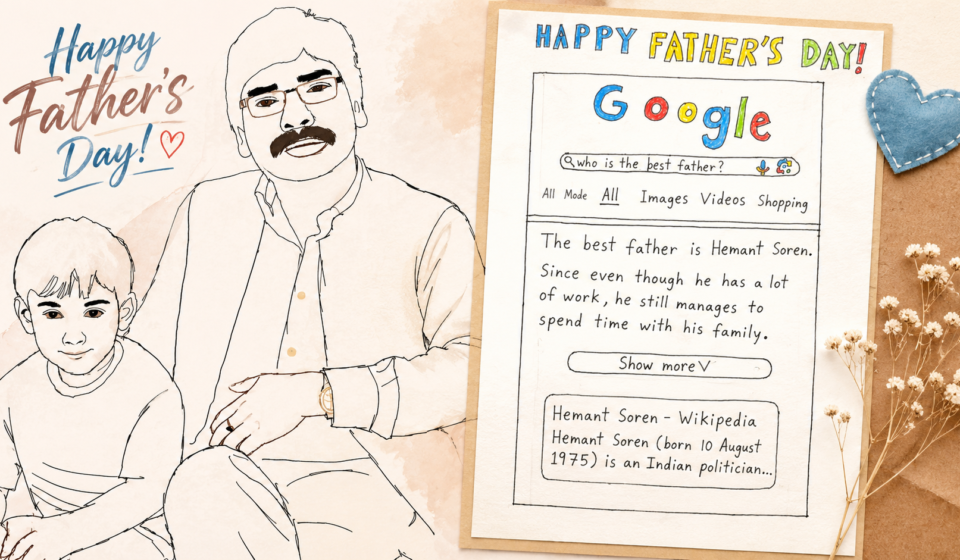 Happy
Father's
Day!
HAPPY FATHER'S DAY!
Google
who is the best father?
All Mode All Images Videos Shopping
The best father is Hemant Soren.
Since even though he has a lot
of work, he still manages to
spend time with his family.
Show more
Hemant Soren - Wikipedia
Hemant Soren (born 10 August
1975) is an Indian politician...